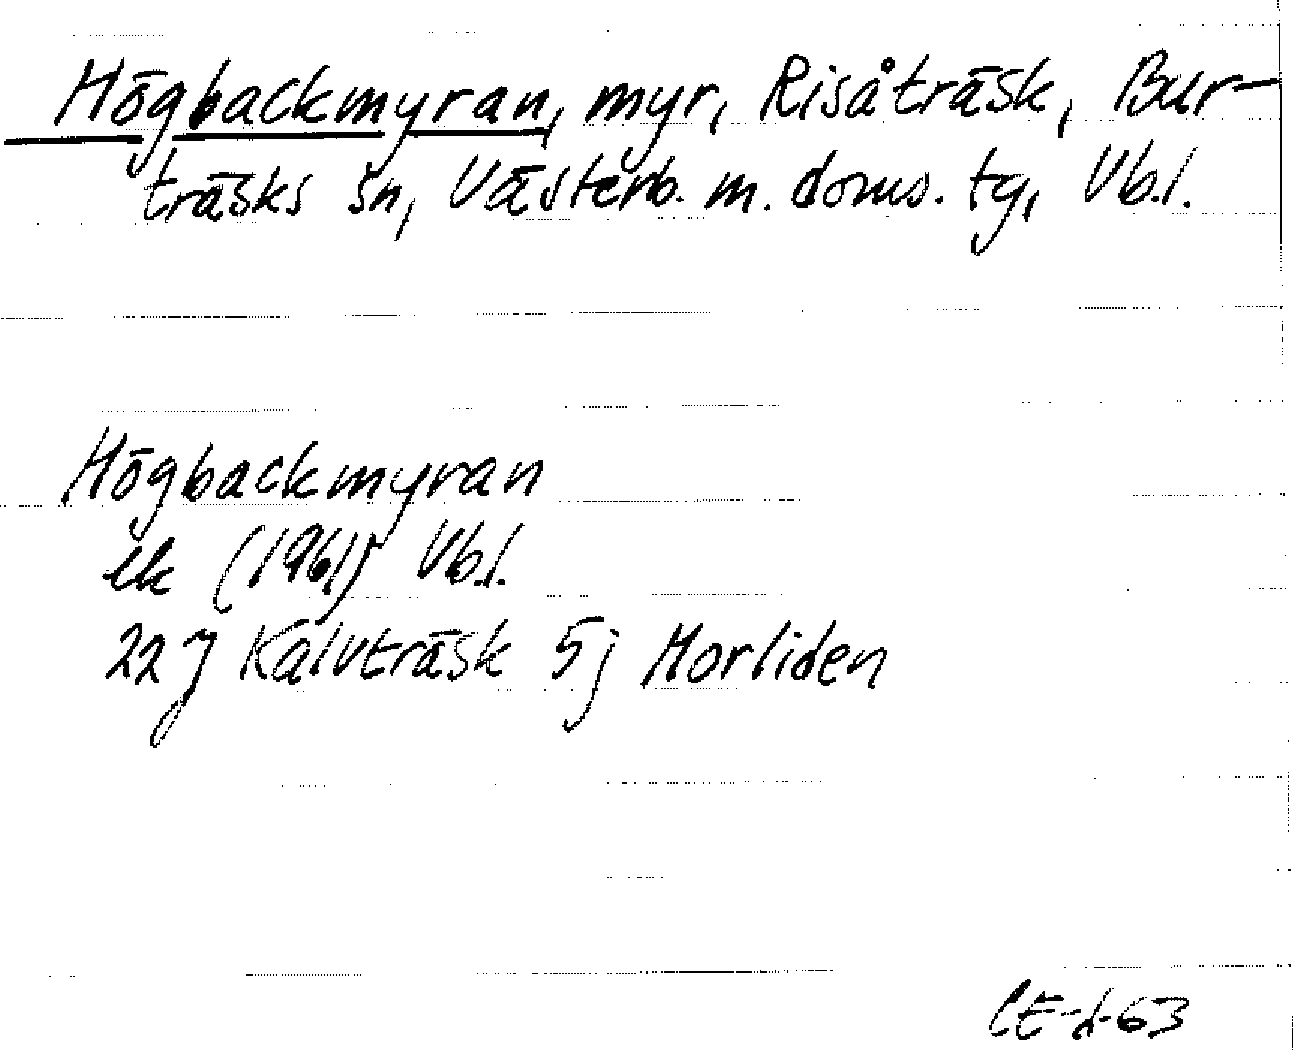 Högbackmyran, myr, Risåträsk, Bur-
träsks sn, Västerb. m. doms. tg, Vb.l.
Högbackmyran
ek (1961) Vb.l.
22 j Kalvträsk 5 j Morliden
63